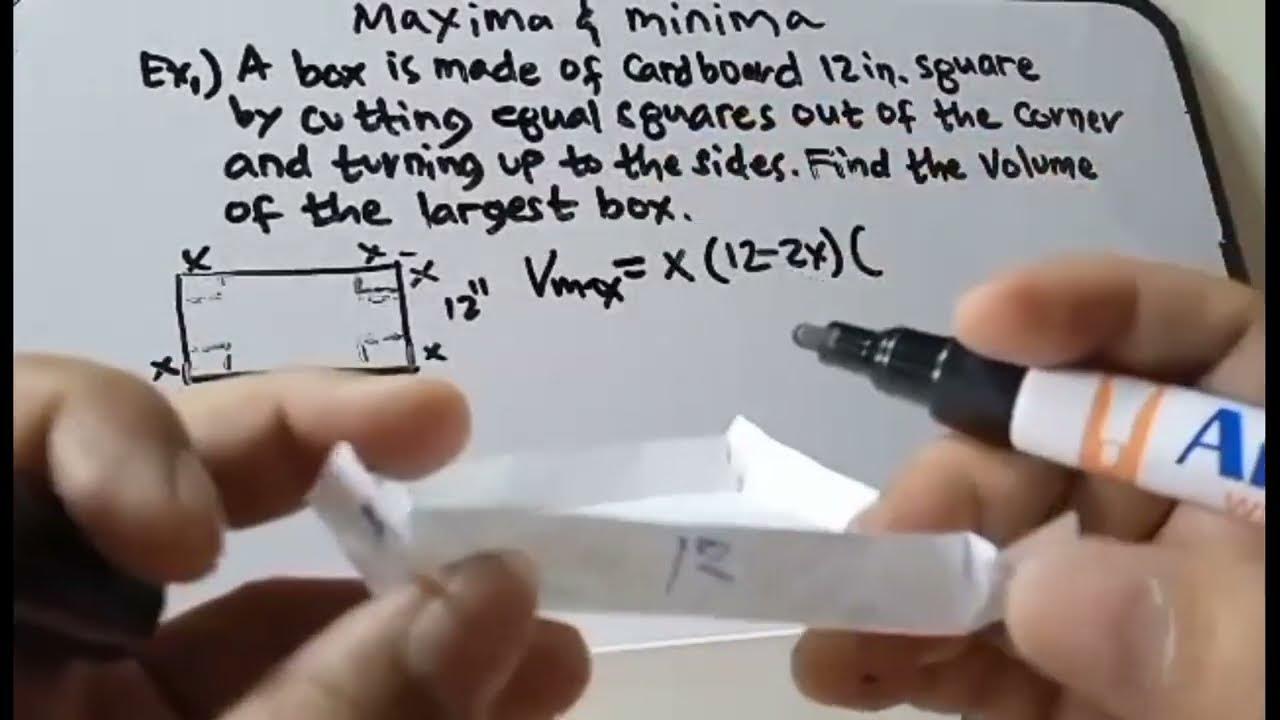 Maxima & minima
Ex.) A box is made of cardboard 12 in. square
by cutting equal squares out of the corner
and turning up to the sides. Find the volume
of the largest box.
x x x 12" Vmax = x (12-2x)(
x x
12